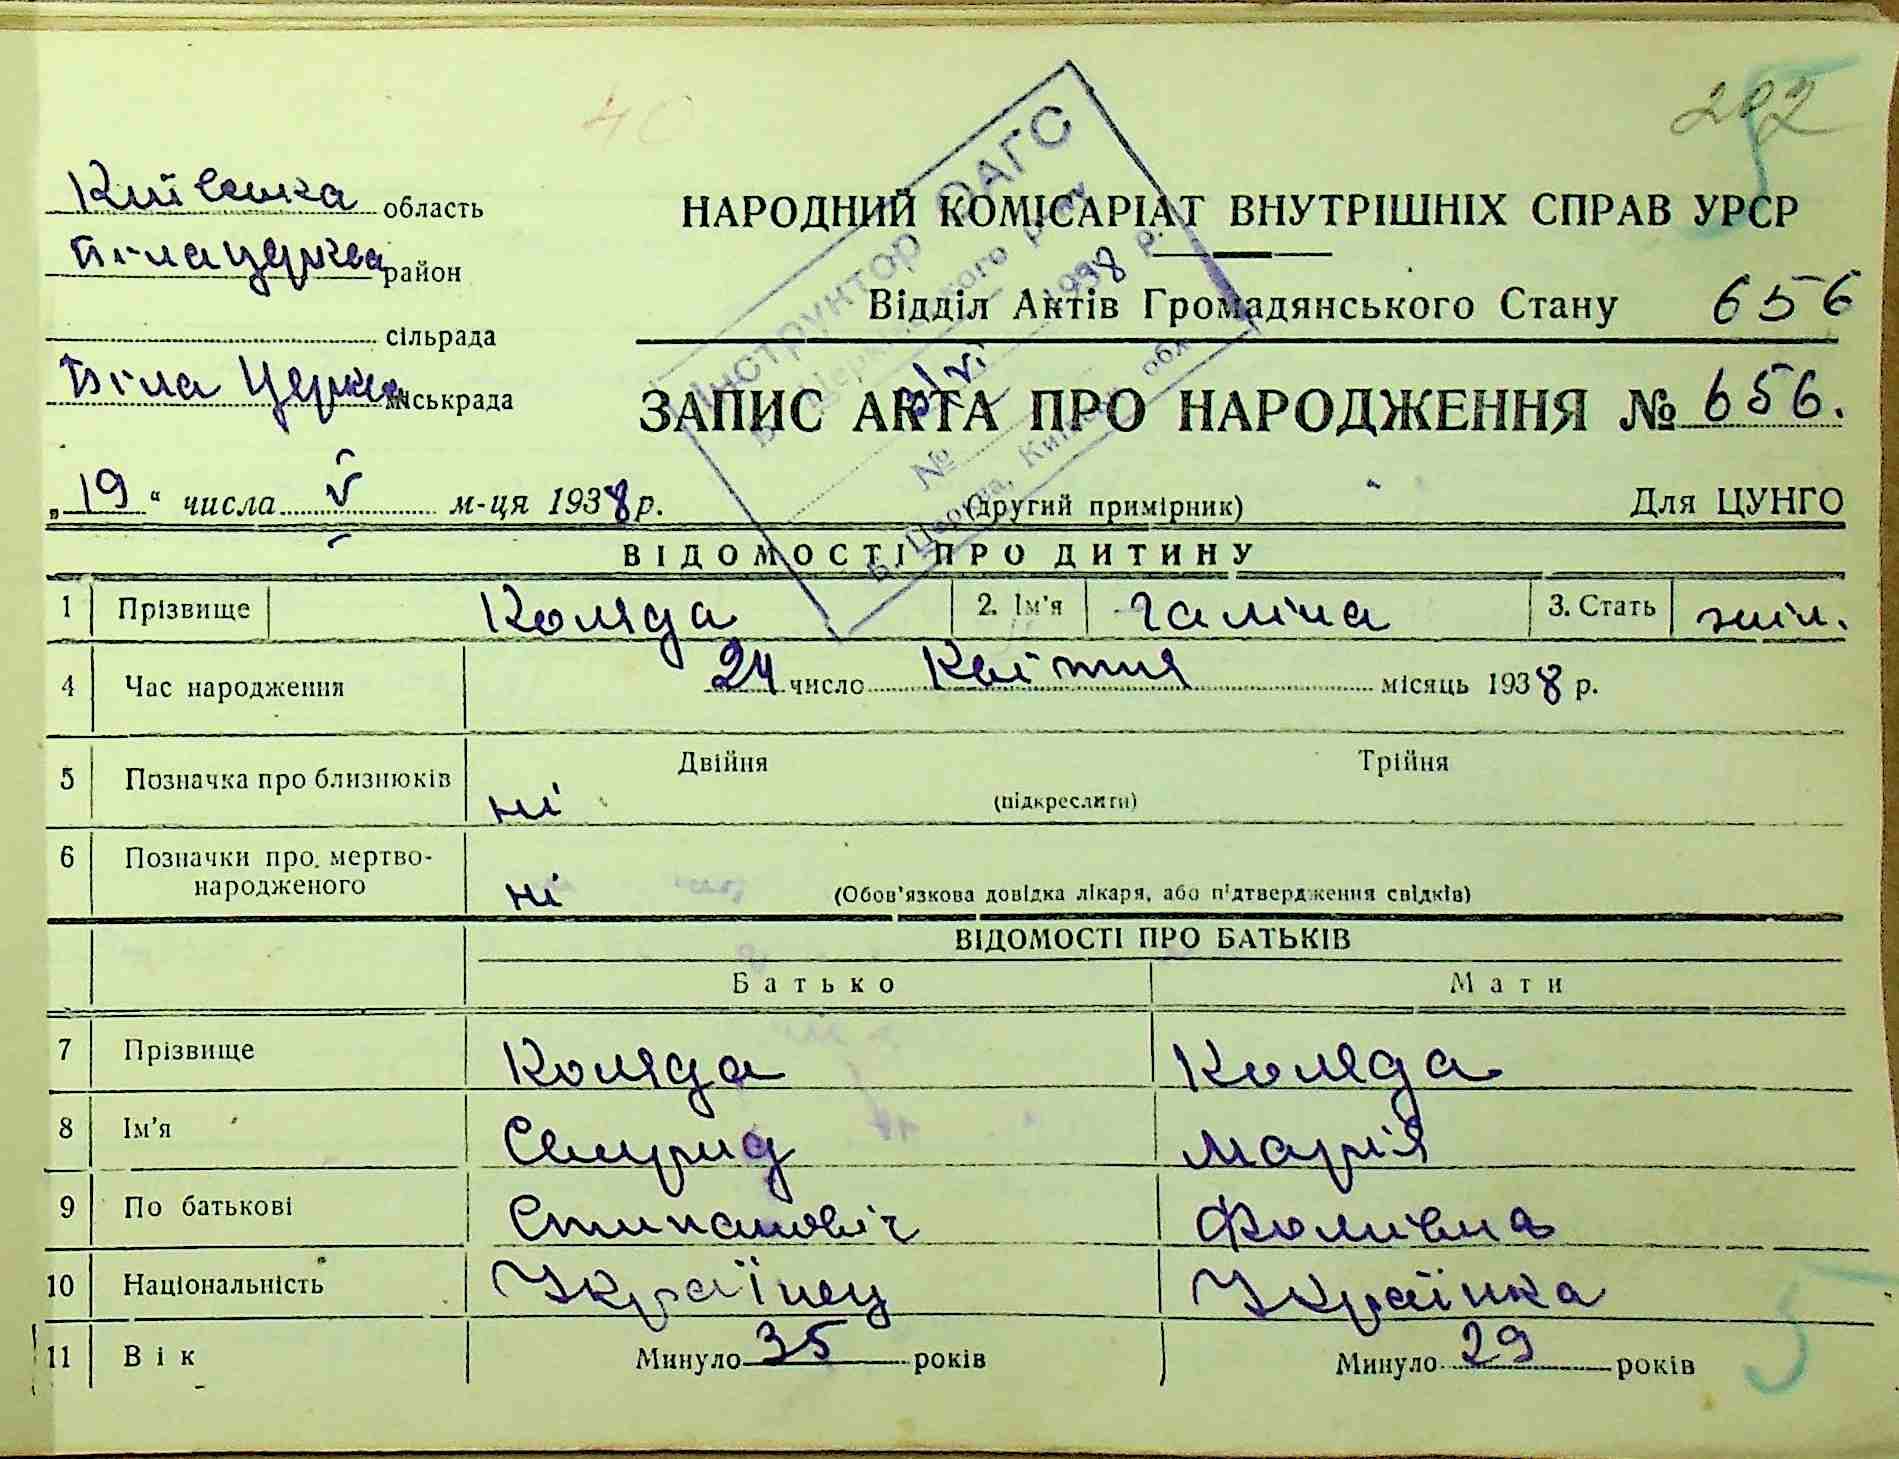 292
40
Київська область
НАРОДНИЙ КОМІСАРІАТ ВНУТРІШНІХ СПРАВ УРСР
Білацерква район
Відділ Актів Громадянського Стану 656
сільрада
Біла Церква міськрада
ЗАПИС АКТА ПРО НАРОДЖЕННЯ № 656.
„19“ числа V м-ця 1938 р. (другий примірник) Для ЦУНГО
Інструктор ОАГС
1938 р.
№
Б. Церква, Київ. обл.
ВІДОМОСТІ ПРО ДИТИНУ
1 Прізвище Коляда 2. Ім'я Галіна 3. Стать жін.
4 Час народження 24 число Квітня місяць 1938 р.
5 Позначка про близнюків ні Двійня Трійня
(підкреслити)
6 Позначки про мертво-
народженого ні (Обов'язкова довідка лікаря, або підтвердження свідків)
ВІДОМОСТІ ПРО БАТЬКІВ
Батько Мати
7 Прізвище Коляда Коляда
8 Ім'я Свирид Марія
9 По батькові Стипанович Фомівна
10 Національність Українец Українка
11 Вік Минуло 35 років Минуло 29 років
5